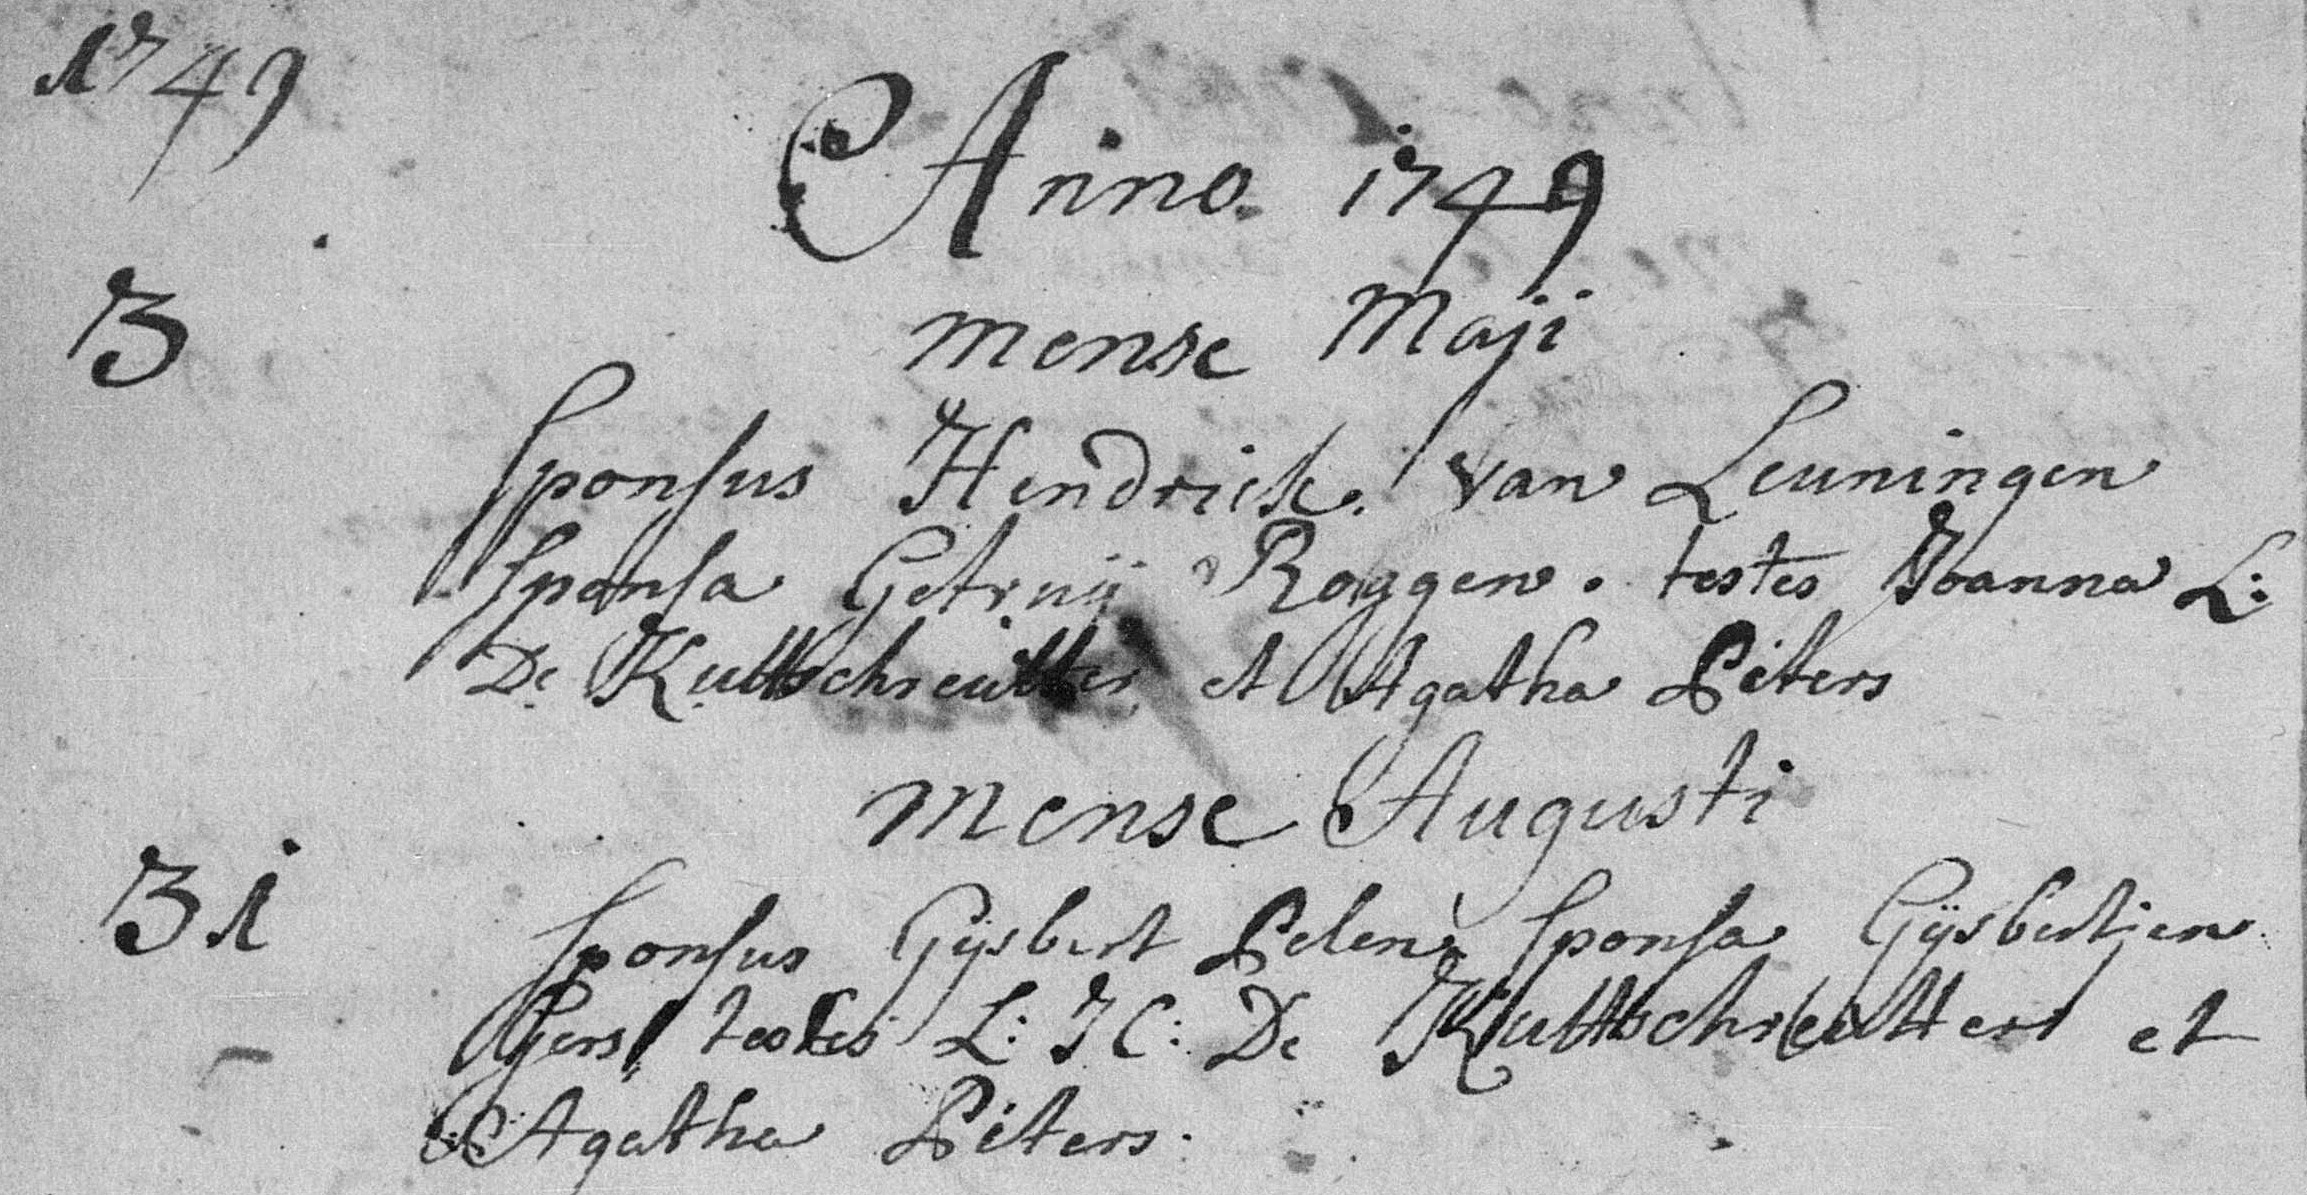 1749
Anno 1749
3
mense Maji
Sponsus Hendrick van Leuningen
Sponsa Getruij Roggen. testes Joanna L:
De Kuttschreutter et Agatha Peters
mense Augusti
31
Sponsus Gijsbert Pelen Sponsa Gijsbertjen
testes L: J C: De Kuttschreutter et
Agatha Peters.